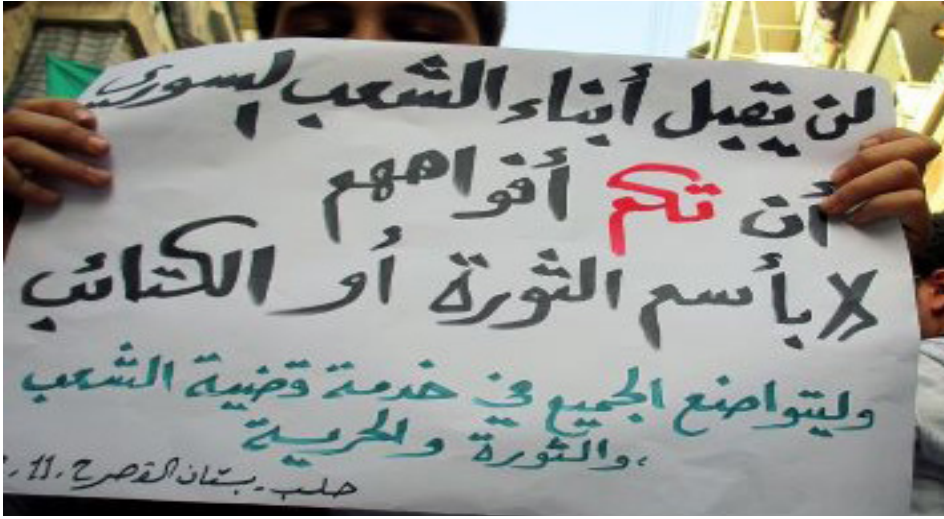 لن يقبل أبناء الشعب السوري
أن تكم أفواههم
لا بأسم الثورة أو الكتائب
وليتواضع الجميع في خدمة قضية الشعب
،والثورة والحرية
حلب - بستان القصر